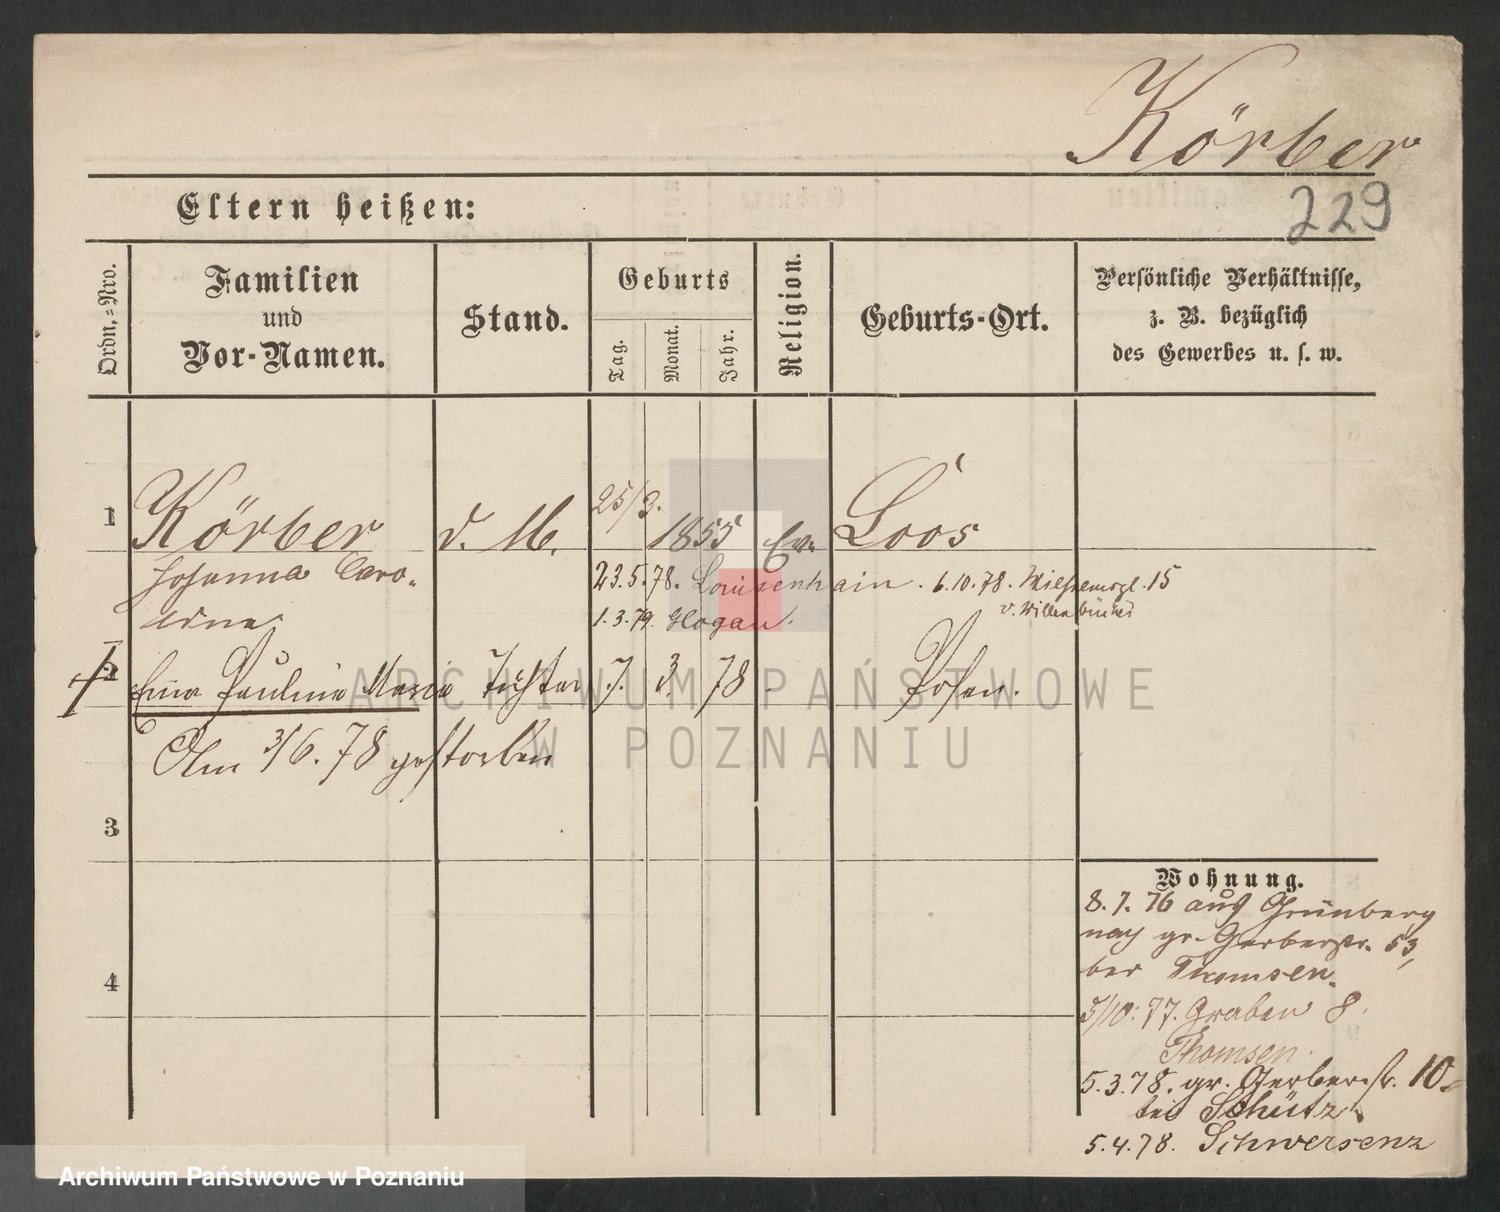 Körber
229
Eltern heißen:
Ordn.-Nro.
Familien
und
Vor-Namen.
Stand.
Geburts
Tag.
Monat.
Jahr.
Religion.
Geburts-Ort.
Persönliche Verhältnisse,
z. B. bezüglich
des Gewerbes u. s. w.
1 Körber d. M. 25/3. 1855 Ev. Loos
Johanna Caro-
line
23.5.78. Louisenhain. 6.10.78. Wilhelmspl. 15
v. Willenbücher
1.3.79. Glogau.
2 Pauline Marie Tochter 7. 3. 78 Posen.
Am 3/6.78 gestorben
3
4
Wohnung.
8.7.76 aus Grünberg
nach gr. Gerberstr. 53,
bei Thomsen.
5/10.77. Graben 8.
Thomsen.
5.3.78. gr. Gerberstr. 10
bei Schütz
5.4.78. Schwersenz
ARCHIWUM PAŃSTWOWE
W POZNANIU
Archiwum Państwowe w Poznaniu